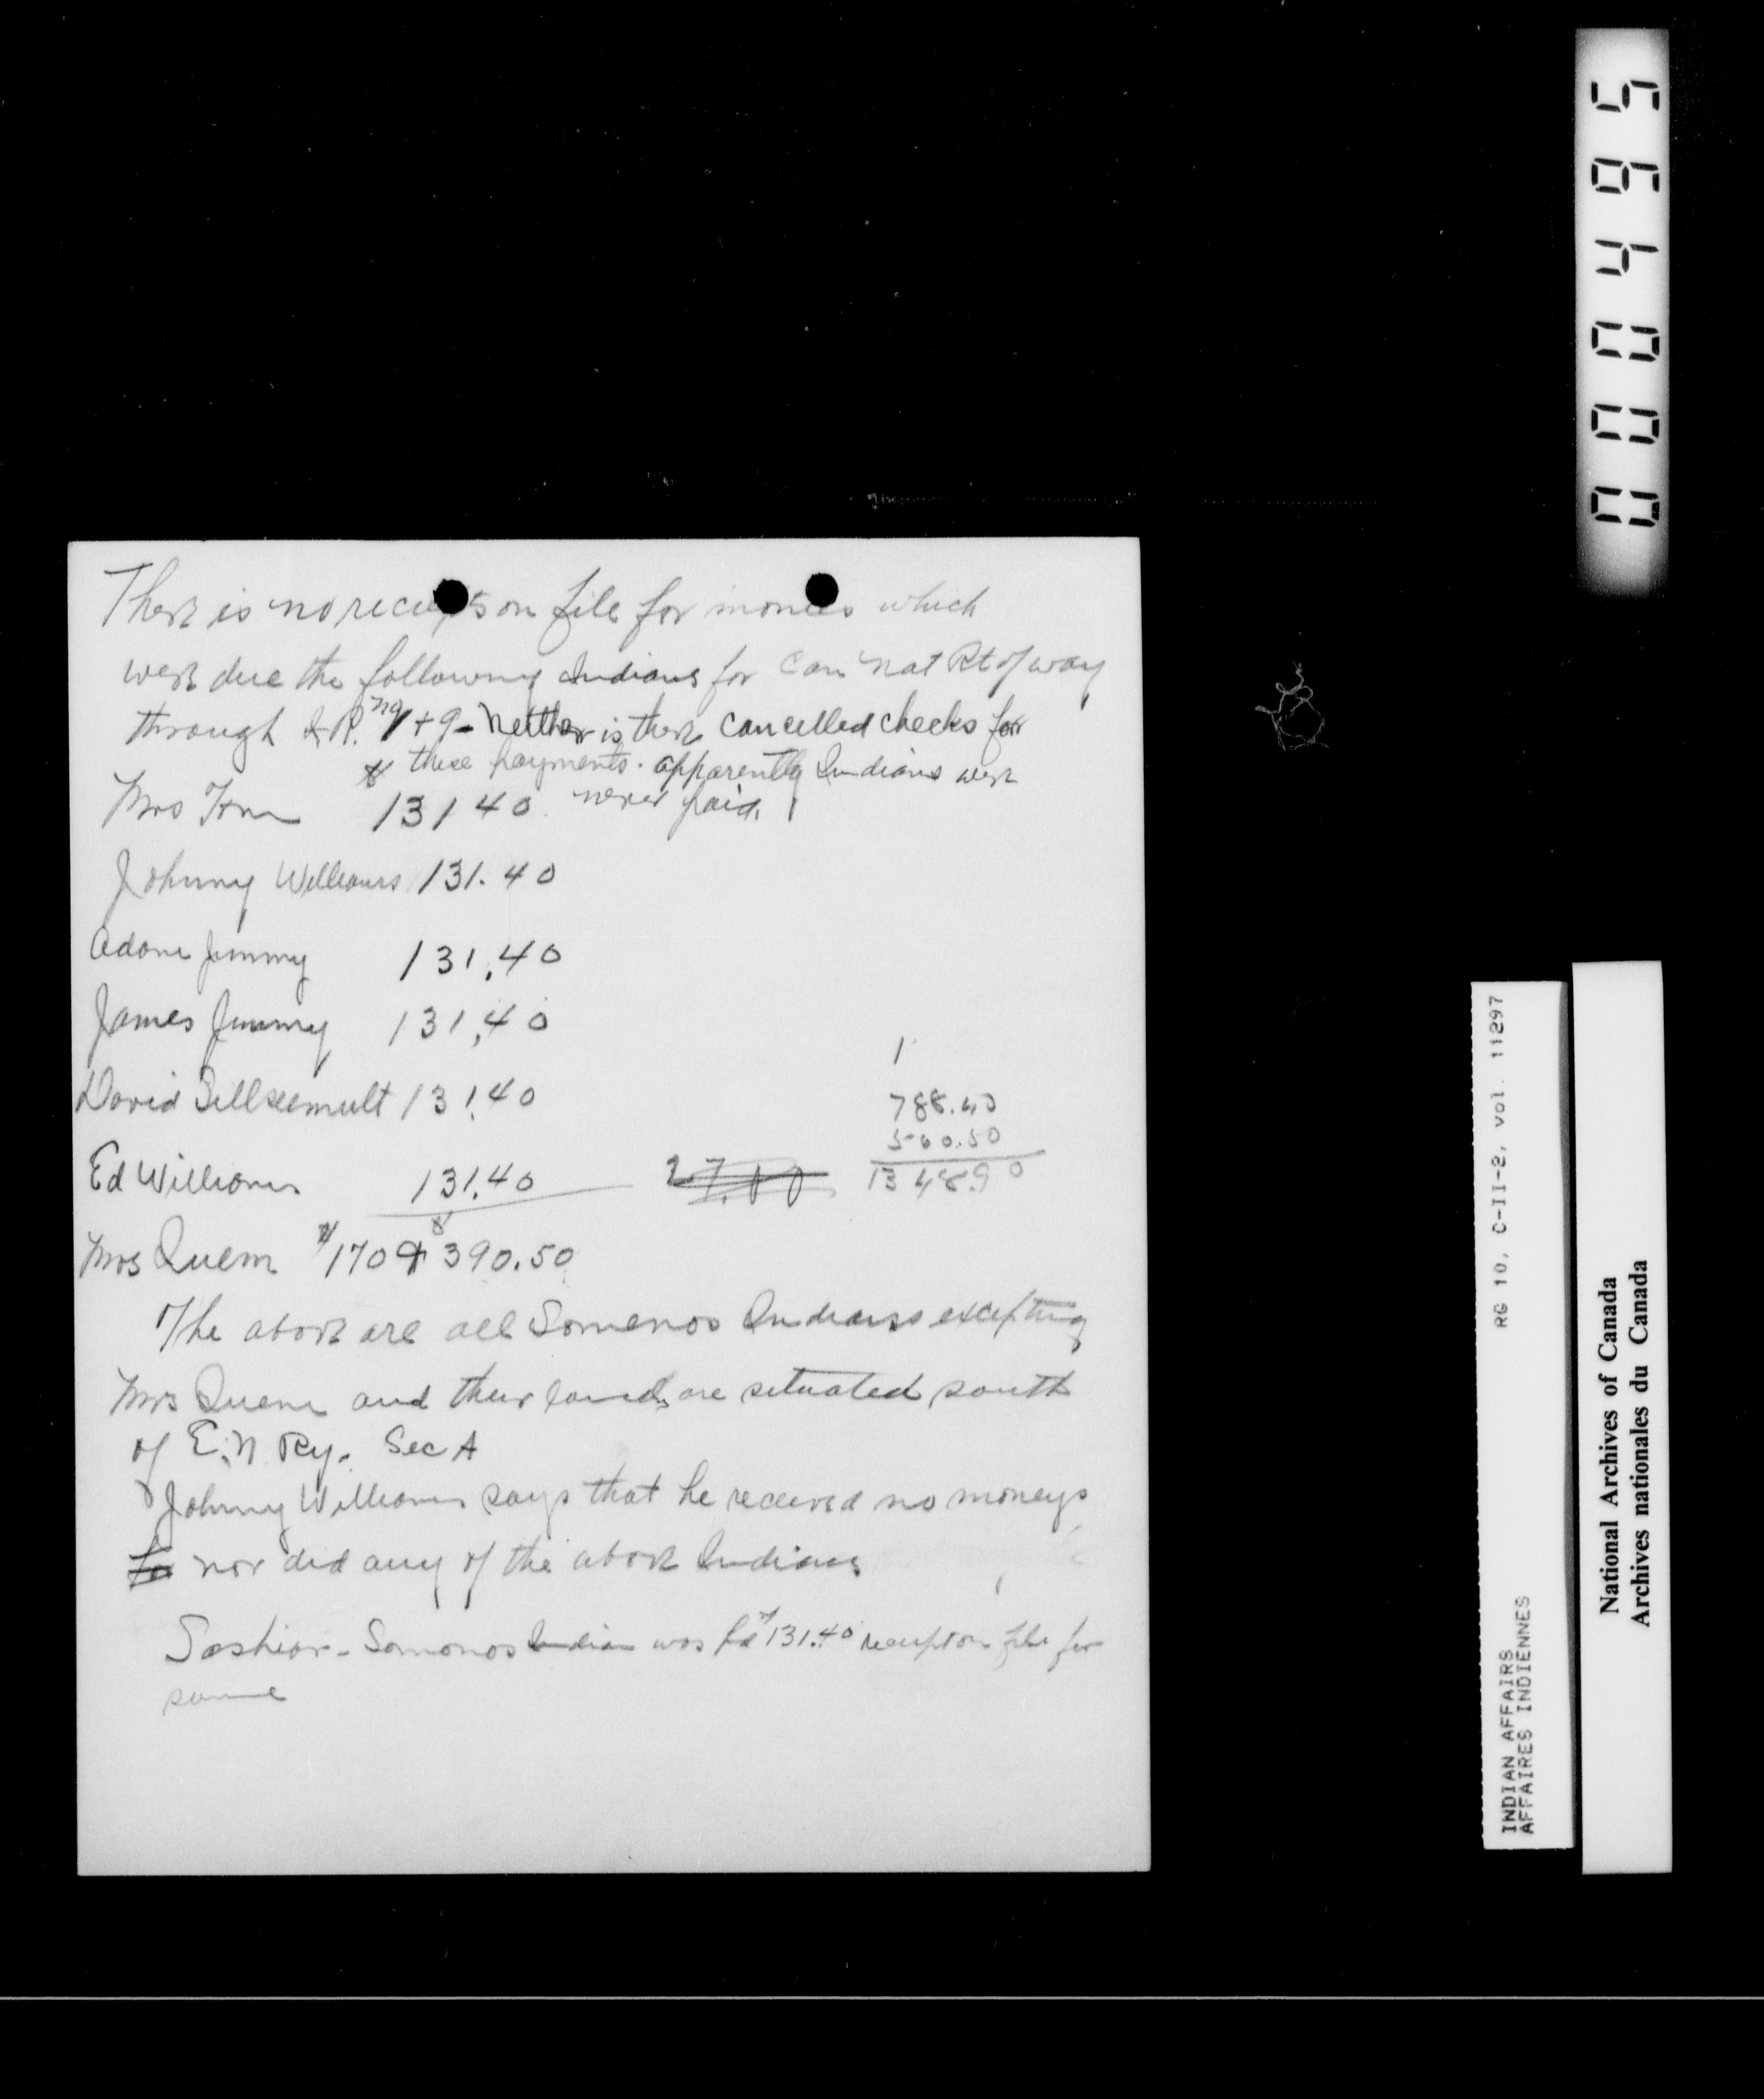 There is no reciepts on file for monies which
were due the following Indians for Can Nat Rt of way
through I.R. No 1 + 9 - Neither is there cancelled checks for
these payments. apparently Indians were
never paid.
Mrs Tom $ 131 40
Johnny Williams 131.40
Adam Jimmy 131.40
James Jimmy 131.40
David 131.40
Ed Williams 131.40
27.00
1
788.40
560.50
1348.90
Mrs Quem $170 + $390.50
The above are all Somenos Indians excepting
Mrs Quem and their lands are situated south
of E.N. Ry. Sec A
Johnny Williams says that he received no moneys
for nor did any of the above Indians
Somonos Indian was pd $131.40 receipt on file for
same
594000
RG 10, C-II-2, vol. 11297
INDIAN AFFAIRS
AFFAIRES INDIENNES
National Archives of Canada
Archives nationales du Canada